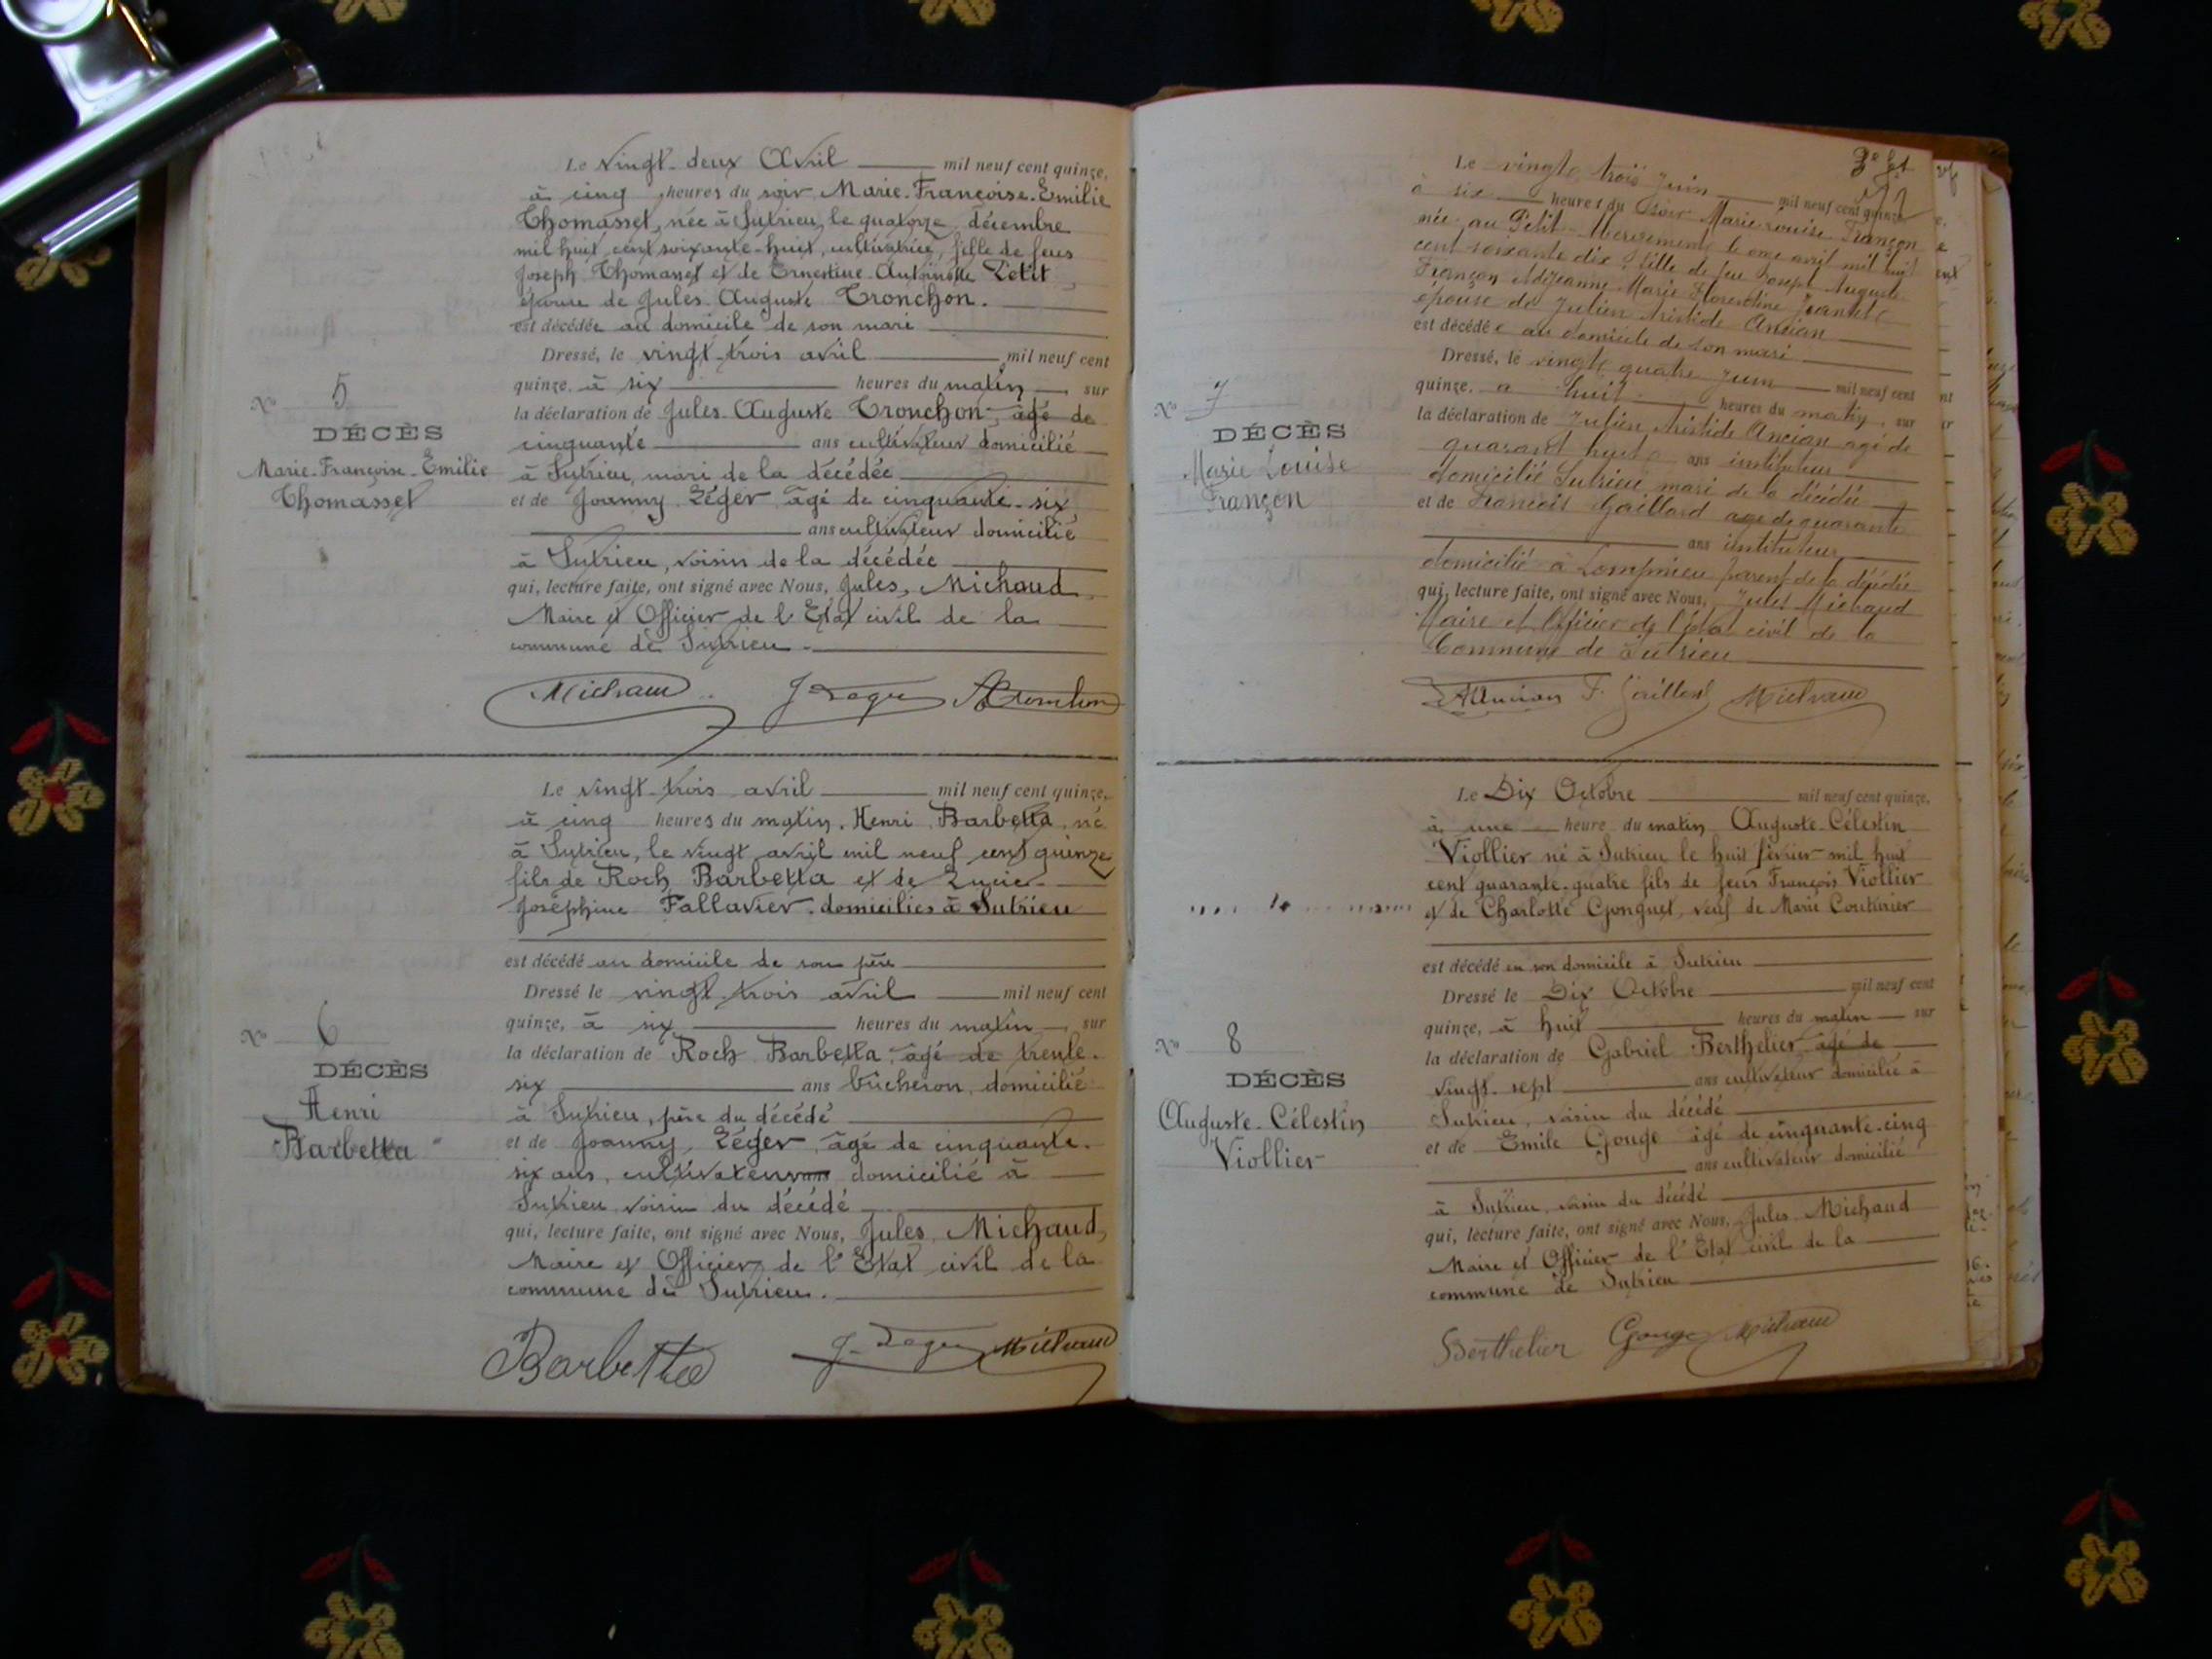 Le vingt-deux Avril mil neuf cent quinze,
à cinq heures du soir Marie-Françoise-Emilie
Thomasset, née à Sutrieu, le quatorze décembre
mil huit cent soixante-huit, cultivatrice, fille de feus
Joseph Thomasset et de Ernestine Antoinette Petit
épouse de Jules Auguste Tronchon.
est décédée au domicile de son mari
Dressé, le vingt-trois avril mil neuf cent
quinze, à six heures du matin sur
la déclaration de Jules Auguste Tronchon, âgé de
cinquante ans cultivateur domicilié
à Sutrieu, mari de la décédée
et de Joanny Léger âgé de cinquante-six
ans cultivateur domicilié
à Sutrieu, voisin de la décédée
qui, lecture faite, ont signé avec Nous, Jules, Michaud,
Maire et Officier de l'Etat civil de la
commune de Sutrieu.
Michaud J. Léger
No 5
DÉCÈS
Marie-Françoise-Emilie
Thomasset
Le vingt-trois avril mil neuf cent quinze,
à cinq heures du matin, Henri Barbetta, né
à Sutrieu, le vingt avril mil neuf cent quinze
fils de Roch Barbetta et de Lucie-
Joséphine Fallavier, domiciliés à Sutrieu
est décédé au domicile de son père
Dressé le vingt-trois avril mil neuf cent
quinze, à six heures du matin, sur
la déclaration de Roch Barbetta, âgé de trente-
six ans bûcheron, domicilié
à Sutrieu, père du décédé
et de Joanny, Léger, âgé de cinquante-
six ans, cultivateur domicilié à
Sutrieu voisin du décédé
qui, lecture faite, ont signé avec Nous, Jules, Michaud,
Maire et Officier de l'Etat civil de la
commune de Sutrieu.
Barbetta J. Léger Michaud
No 6
DÉCÈS
Henri
Barbetta
3e ft
Le vingt trois Juin mil neuf cent quinze
à six heures du soir Marie Louise Françon
née au Petit-Abergement le onze avril mil huit
cent soixante dix, fille de feu Joseph Auguste
Françon et de Jeanne Marie Florentine
épouse de Julien Aristide Ancian
est décédée au domicile de son mari
Dressé, le vingt quatre Juin mil neuf cent
quinze, à huit heures du matin sur
la déclaration de Julien Aristide Ancian agé de
quarante huit ans instituteur
domicilié Sutrieu mari de la décédée
et de François Gaillard agé de quarante
ans instituteur
domicilié à Lompnieu parent de la décédée
qui, lecture faite, ont signé avec Nous, Jules Michaud
Maire et Officier de l'état civil de la
Commune de Sutrieu
Ancian F. Gaillard Michaud
No 7
DÉCÈS
Marie Louise
Françon
Le Dix Octobre mil neuf cent quinze,
à une heure du matin Auguste-Célestin
Viollier né à Sutrieu le huit février mil huit
cent quarante-quatre fils de feus François Viollier
et de Charlotte Gonguet, veuf de Marie Couturier
est décédé en son domicile à Sutrieu
Dressé le Dix Octobre mil neuf cent
quinze, à huit heures du matin sur
la déclaration de Gabriel Berthelier âgé de
vingt-sept ans cultivateur domicilié à
Sutrieu, voisin du décédé
et de Emile Gouge âgé de cinquante-cinq
ans cultivateur domicilié
à Sutrieu, voisin du décédé
qui, lecture faite, ont signé avec Nous, Jules Michaud
Maire et Officier de l'Etat civil de la
commune de Sutrieu
Berthelier Gouge Michaud
No 8
DÉCÈS
Auguste-Célestin
Viollier